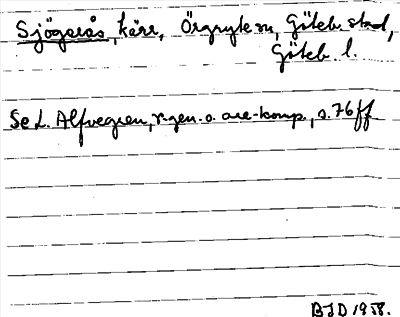 Sjögerås, kärr, Örgryte sn, Göteb. stad,
Göteb. l.
Se L. Alfvegren, r-gen. o. are-komp., s. 76 ff
BJD 1958.